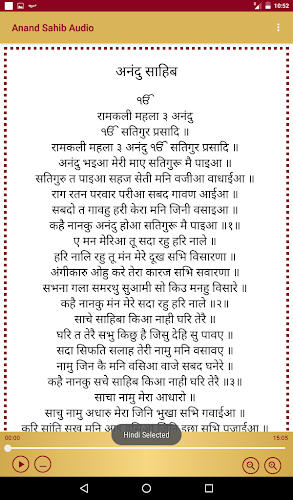 10:52
Anand Sahib Audio
अनंदु साहिब
ੴ
रामकली महला ३ अनंदु
ੴ सतिगुर प्रसादि ॥
रामकली महला ३ अनंदु ੴ सतिगुर प्रसादि ॥
अनंदु भइआ मेरी माए सतिगुरू मै पाइआ ॥
सतिगुरु त पाइआ सहज सेती मनि वजीआ वाधाईआ ॥
राग रतन परवार परीआ सबद गावण आईआ ॥
सबदो त गावहु हरी केरा मनि जिनी वसाइआ ॥
कहै नानकु अनंदु होआ सतिगुरू मै पाइआ ॥१॥
ए मन मेरिआ तू सदा रहु हरि नाले ॥
हरि नालि रहु तू मंन मेरे दूख सभि विसारणा ॥
अंगीकारु ओहु करे तेरा कारज सभि सवारणा ॥
सभना गला समरथु सुआमी सो किउ मनहु विसारे ॥
कहै नानकु मंन मेरे सदा रहु हरि नाले ॥२॥
साचे साहिबा किआ नाही घरि तेरै ॥
घरि त तेरै सभु किछु है जिसु देहि सु पावए ॥
सदा सिफति सलाह तेरी नामु मनि वसावए ॥
नामु जिन कै मनि वसिआ वाजे सबद घनेरे ॥
कहै नानकु सचे साहिब किआ नाही घरि तेरै ॥३॥
साचा नामु मेरा आधारो ॥
साचु नामु अधारु मेरा जिनि भुखा सभि गवाईआ ॥
करि सांति सुख मनि इछा सभि पुजाईआ ॥
Hindi Selected
00:00
15:05